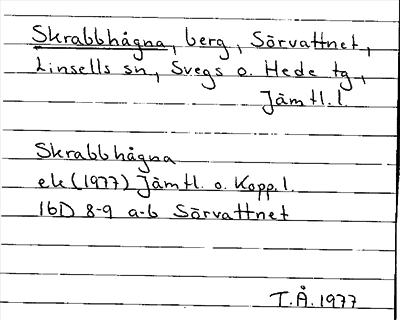 Skrabbhågna, berg, Sörvattnet,
Linsells sn, Svegs o. Hede tg.,
Jämtl. l.
Skrabbhågna
ek (1977) Jämtl. o. Kopp. l.
16D 8-9 a-b Sörvattnet
T.Å. 1977